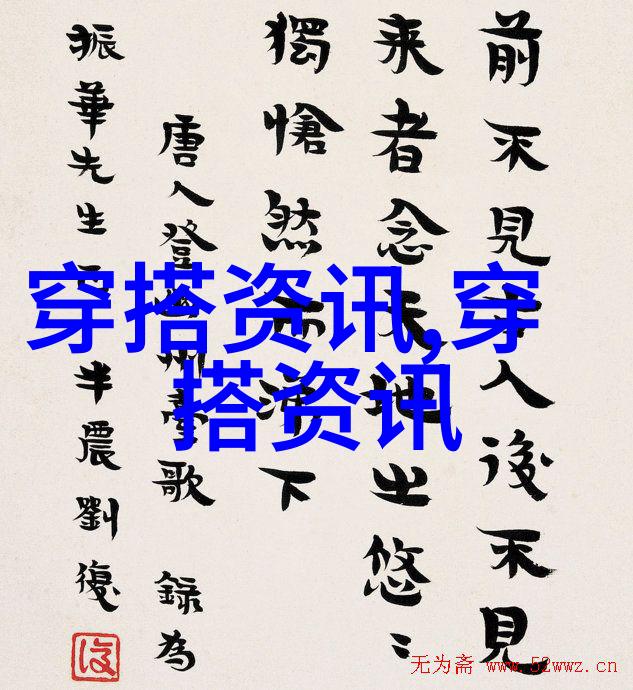 前不見古人後不見
来者念天地之悠〻
獨愴然而涕下
唐人登幽州臺歌 錄為
振華先生 半農劉復
穿搭资讯,穿
搭资讯
无为斋 www.52wwz.cn